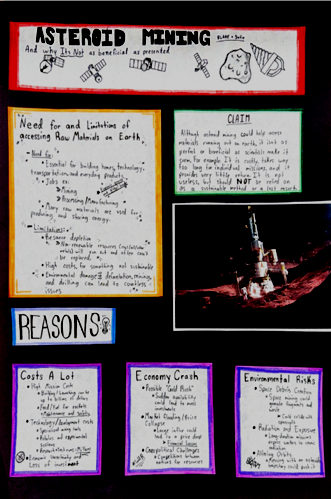 ASTEROID MINING
And why It's Not as beneficial as presented
Need for and Limitations of
accessing Raw Materials on Earth
Need for:
Essential for building homes, technology,
transportation, and everyday products
Jobs ex:
Mining
Processing/Manufacturing
Many raw materials are used for
producing and sharing energy.
Limitations:
Resource depletion
Non-renewable resources
will run out and often can't
be replaced.
High costs for something not sustainable
Environmental damage deforestation, mining,
and drilling can lead to countless
issues
CLAIM
Although asteroid mining could help access
materials running out on earth, it isn't as
perfect or beneficial as scientists make it
seem. For example it is costly, takes way
too long for individual missions, and it
provides very little return. It is not
useless, but should NOT be relied on
as a sustainable method or a last resort.
REASONS
Costs A Lot
High Mission Costs
Building/Launching can be
in billions of dollars
Food/Fuel for
Maintenance and safety
Technology/Development costs
Specialized mining tools
Robotics and experimental
systems
Economic Uncertainty
Loss of investment
Economy Crash
Possible "Gold Rush"
Sudden availability
could lead to
Market Flooding/Price
Collapse
Large influx could
led to a price drop
Financial losses
Geopolitical Challenges
Competition between
nations for resources
Environmental Risks
Space Debris Creation
Space mining could
generate fragments and
waste
Could collide with
Radiation and Exposure
Long-duration missions
Altering Orbits